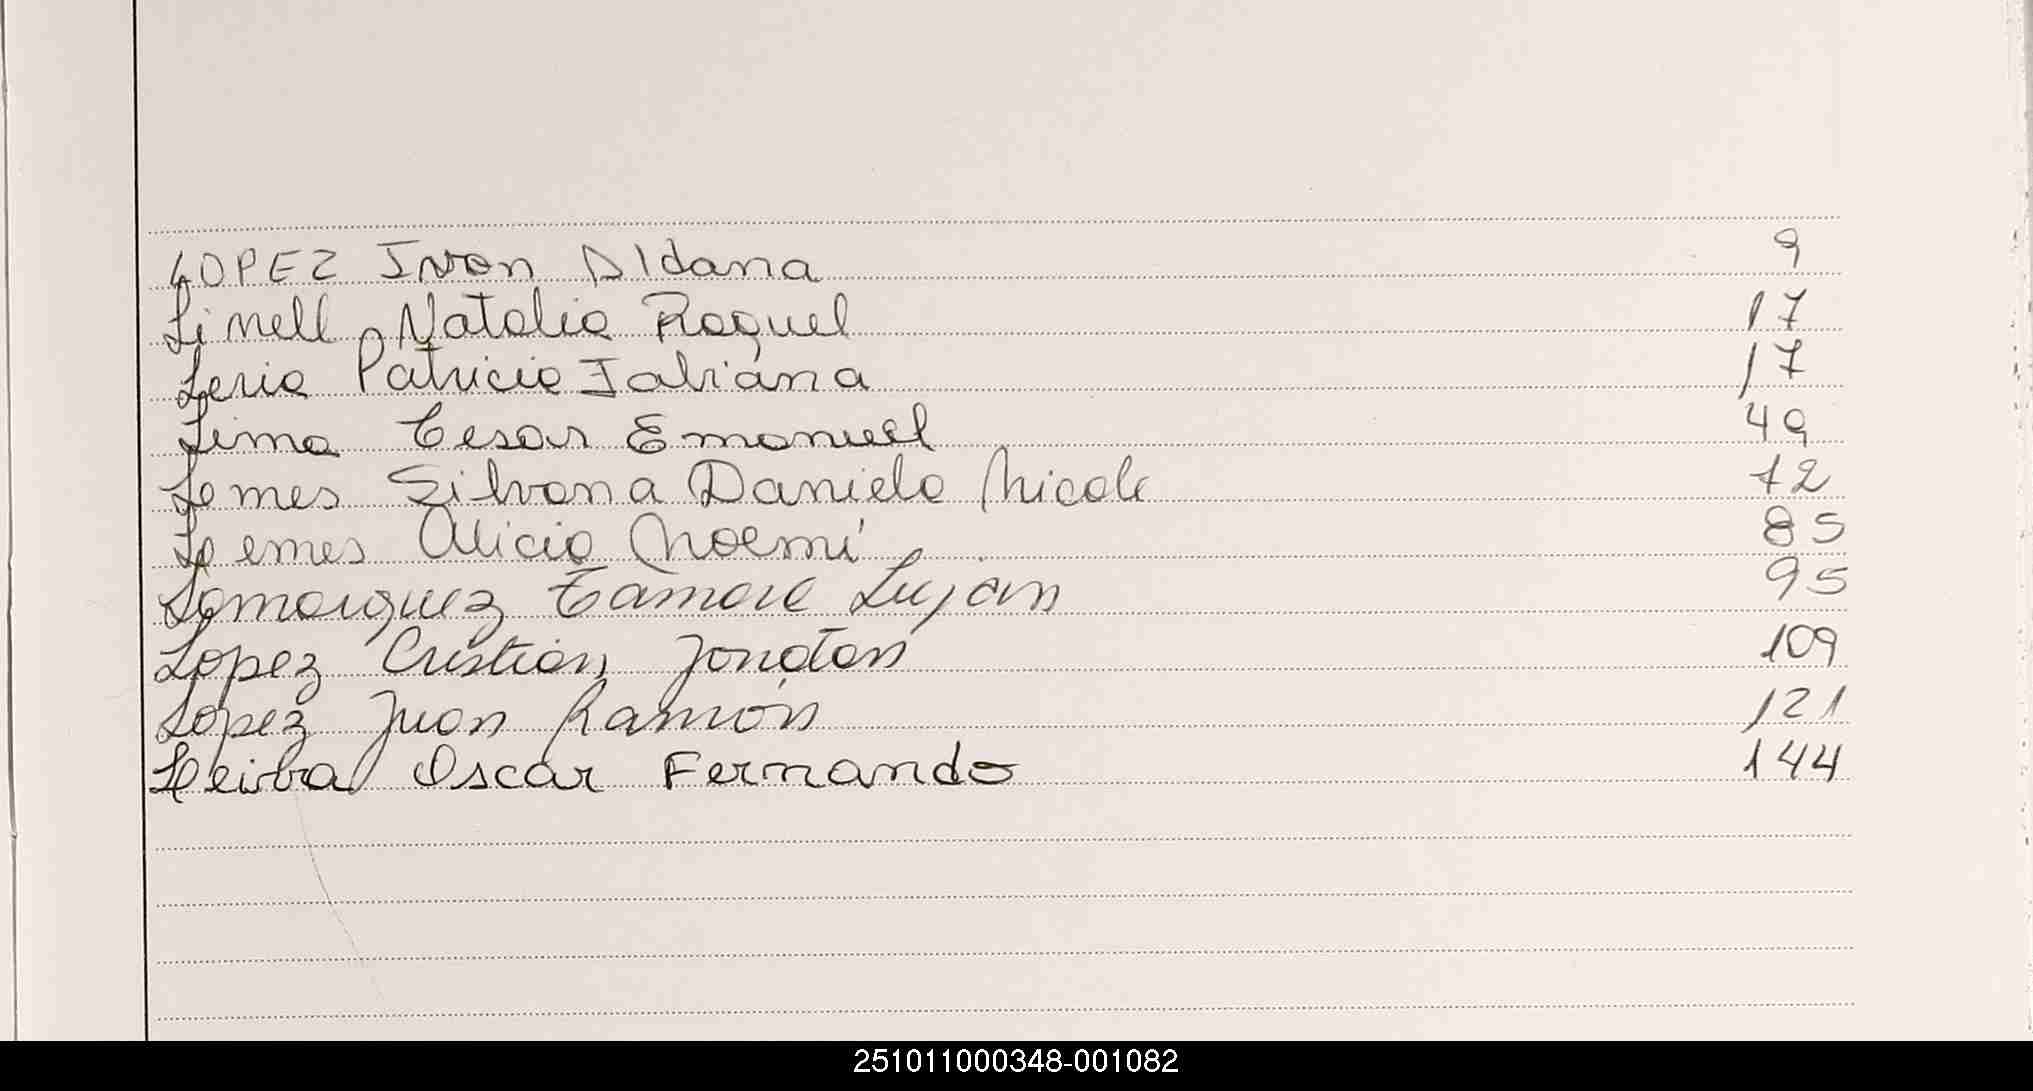 LOPEZ Ivon Aldana 9
Linell Natalia Raquel 17
Leria Patricia Fabiana 17
Lima Cesar Emanuel 49
Lemes Silvana Daniela Nicole 72
Lemes Alicia Noemí 85
Lamarquez Tamara Luján 95
Lopez Cristian, Jonatan 109
Lopez Juan Ramón 121
Leiva Oscar Fernando 144
251011000348-001082